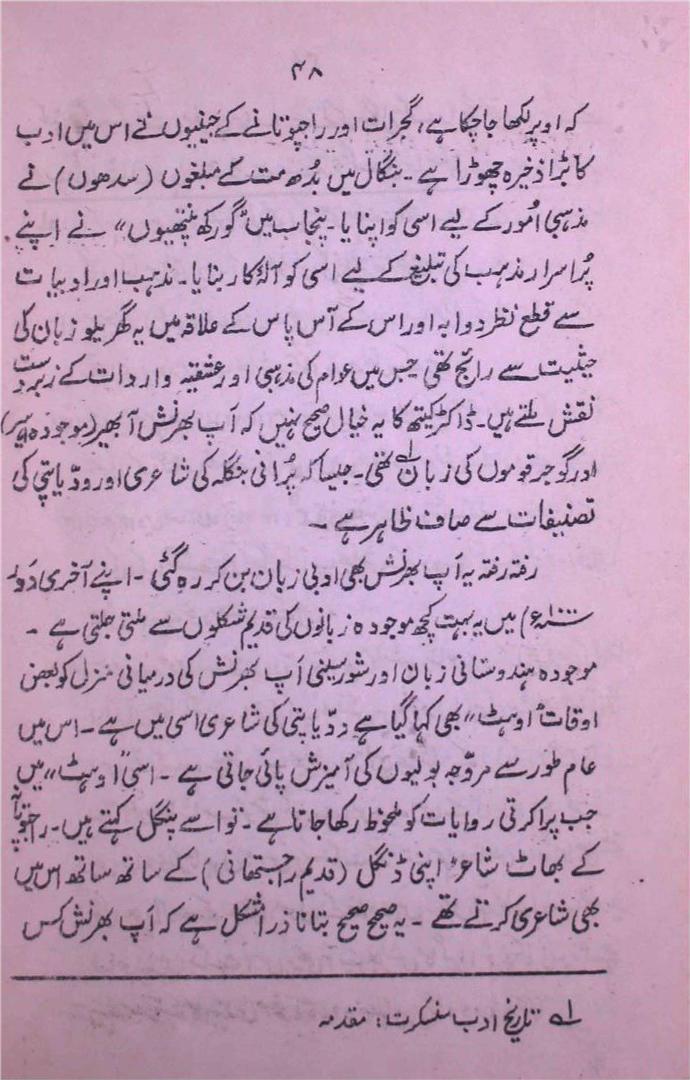 ۴۸
کہ اوپر لکھا جا چکا ہے، گجرات اور راجپوتانے کے جینیوں نے اس میں ادب
کا بڑا ذخیرہ چھوڑا ہے ۔ بنگال میں بُدھ مت کے مبلغوں (سدھوں) نے
مذہبی اُمور کے لیے اسی کو اپنایا۔ پنجاب میں "گورکھ پنتھیوں" نے اپنے
پُراسرار مذہب کی تبلیغ کے لیے اسی کو آلۂ کار بنایا۔ مذہب اور ادبیات
سے قطع نظر دوابہ اور اس کے آس پاس کے علاقہ میں یہ گھریلو زبان کی
حیثیت سے رائج تھی جس میں عوام کی مذہبی اور عشقیہ واردات کے زبردست
نقش ملتے ہیں۔ ڈاکٹر کیتھ کا یہ خیال صحیح نہیں کہ اَپ بھرنش آبھیر (موجودہ اہیر)
اور گوجر قوموں کی زبان تھی۔ ۱؎ جیسا کہ پُرانی بنگلہ کی شاعری اور ودّیاپتی کی
تصنیفات سے صاف ظاہر ہے ۔
رفتہ رفتہ یہ اَپ بھرنش بھی ادبی زبان بن کر رہ گئی ۔ اپنے آخری دَور
۱۰۰۰ء) میں یہ بہت کچھ موجودہ زبانوں کی قدیم شکلوں سے ملتی جلتی ہے ۔
موجودہ ہندوستانی زبان اور شورسینی اَپ بھرنش کی درمیانی منزل کو بعض
اوقات "اوہٹ" بھی کہا گیا ہے ودّیاپتی کی شاعری اسی میں ہے ۔ اس میں
عام طور سے مروّجہ بولیوں کی آمیزش پائی جاتی ہے ۔ اسی "اوہٹ" میں
جب پراکرتی روایات کو ملحوظ رکھا جاتا ہے ۔ تو اسے پنگل کہتے ہیں۔ راجپوتانہ
کے بھاٹ شاعر اپنی ڈنگل (قدیم رجستھانی) کے ساتھ ساتھ اس میں
بھی شاعری کرتے تھے ۔ یہ صحیح صحیح بتانا ذرا مشکل ہے کہ اَپ بھرنش کس
۱؎ تاریخ ادب سنسکرت: مقدمہ